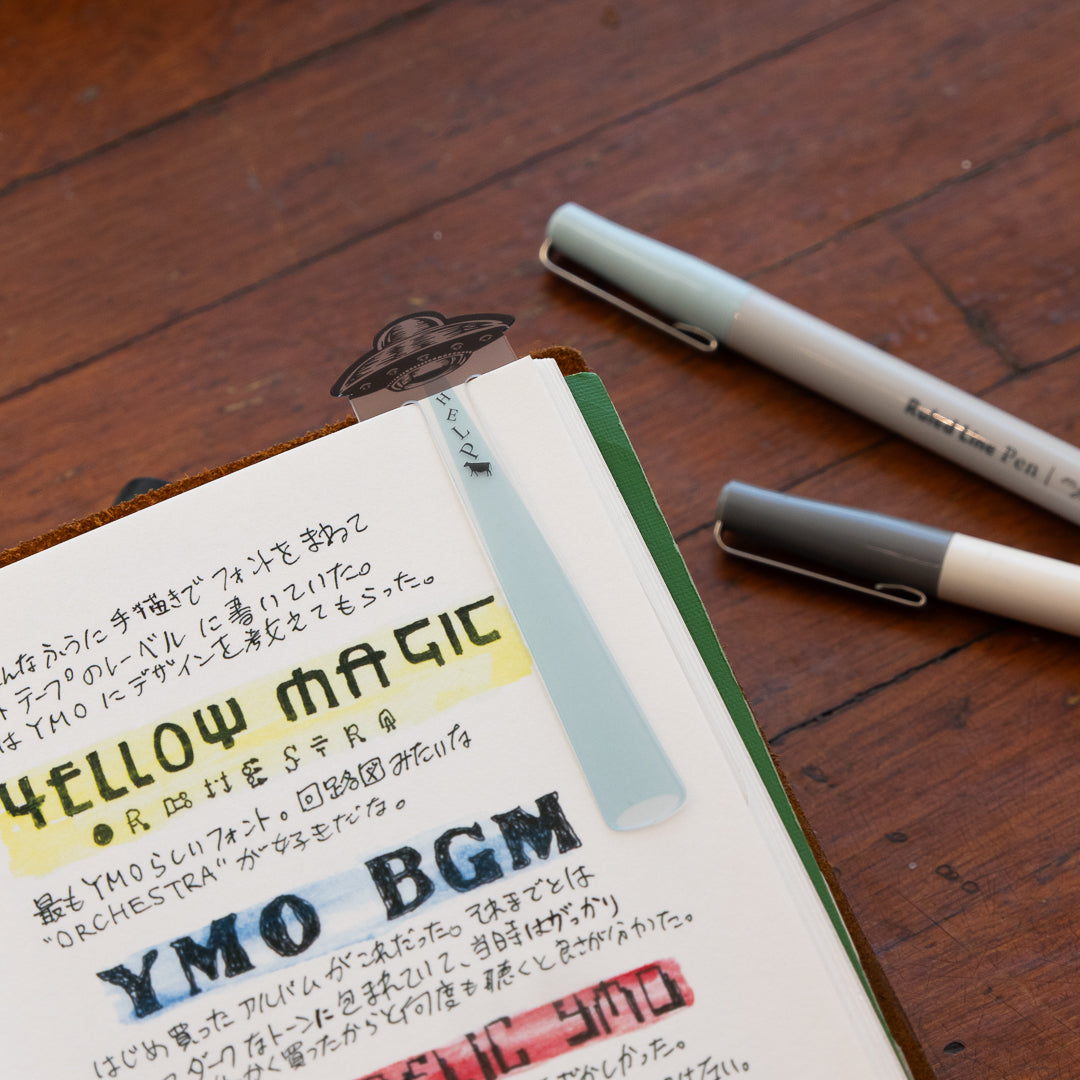 HELP
Ruled Line Pen |
んなふうに手描きでフォントをまねて
トテープのレーベルに書いていた。
はYMOにデザインを考えてもらった。
YELLOW MAGIC
ORCHESTRA
最もYMOらしいフォント。回路図みたいな
"ORCHESTRA"が好きだな。
YMO BGM
はじめ買ったアルバムがこれだった。それまでとは
ダークなトーンに包まれていて、当時はがっかり
かく買ったからと何度も聴くと良さが分かた。
YMO
かしかった。
ない。